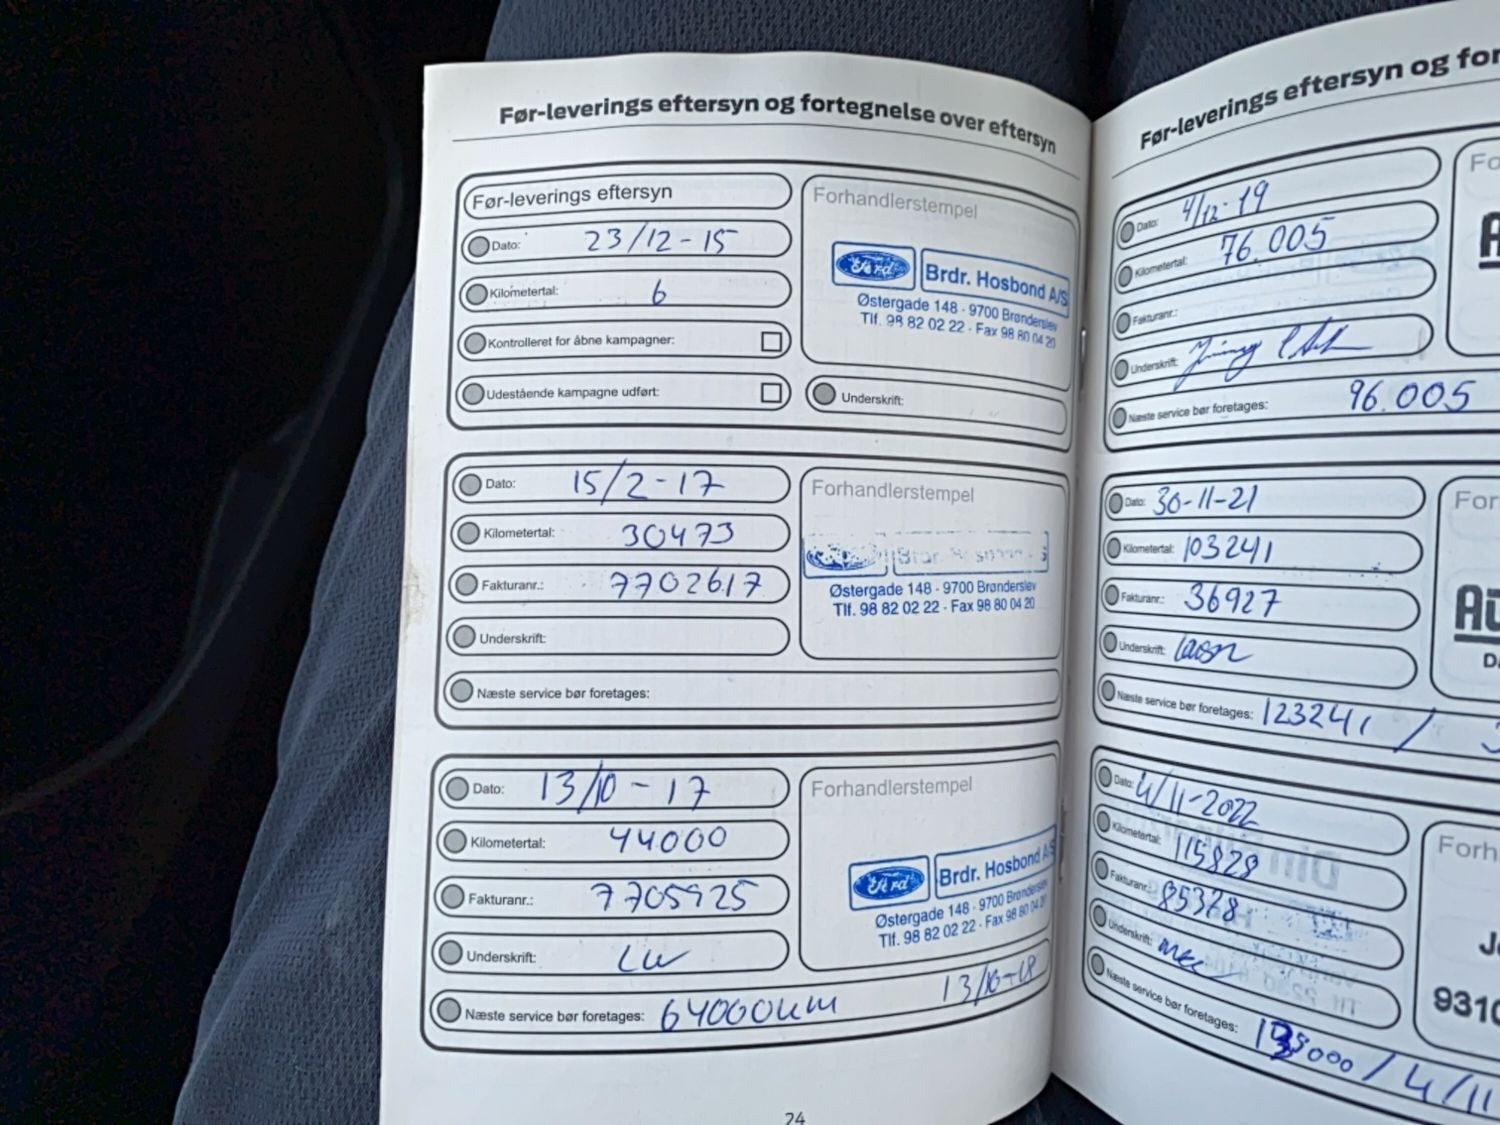 Før-leverings eftersyn og fortegnelse over eftersyn
Før-leverings eftersyn
Dato: 23/12-15
Kilometertal: 6
Kontrolleret for åbne kampagner:
Udestående kampagne udført:
Forhandlerstempel
Ford Brdr. Hosbond A/S
Østergade 148 - 9700 Brønderslev
Tlf. 98 82 02 22 - Fax 98 80 04 20
Underskrift:
Dato: 15/2-17
Kilometertal: 30473
Fakturanr.: 7702617
Underskrift:
Næste service bør foretages:
Forhandlerstempel
Østergade 148 - 9700 Brønderslev
Tlf. 98 82 02 22 - Fax 98 80 04 20
Dato: 13/10-17
Kilometertal: 44000
Fakturanr.: 7705925
Underskrift:
Næste service bør foretages: 64000km 13/10-18
Forhandlerstempel
Ford Brdr. Hosbond A/S
Østergade 148 - 9700 Brønderslev
Tlf. 98 82 02 22 - Fax 98 80 04 20
24
Før-leverings eftersyn og
Dato: 4/12-19
Kilometertal: 76.005
Fakturanr.:
Underskrift:
Næste service bør foretages: 96.005
Dato: 30-11-21
Kilometertal: 103241
Fakturanr.: 36927
Underskrift:
Næste service bør foretages: 123241 /
Dato: 4/11-2022
Kilometertal: 115828
Fakturanr.: 85378
Underskrift:
Næste service bør foretages: / 4/11